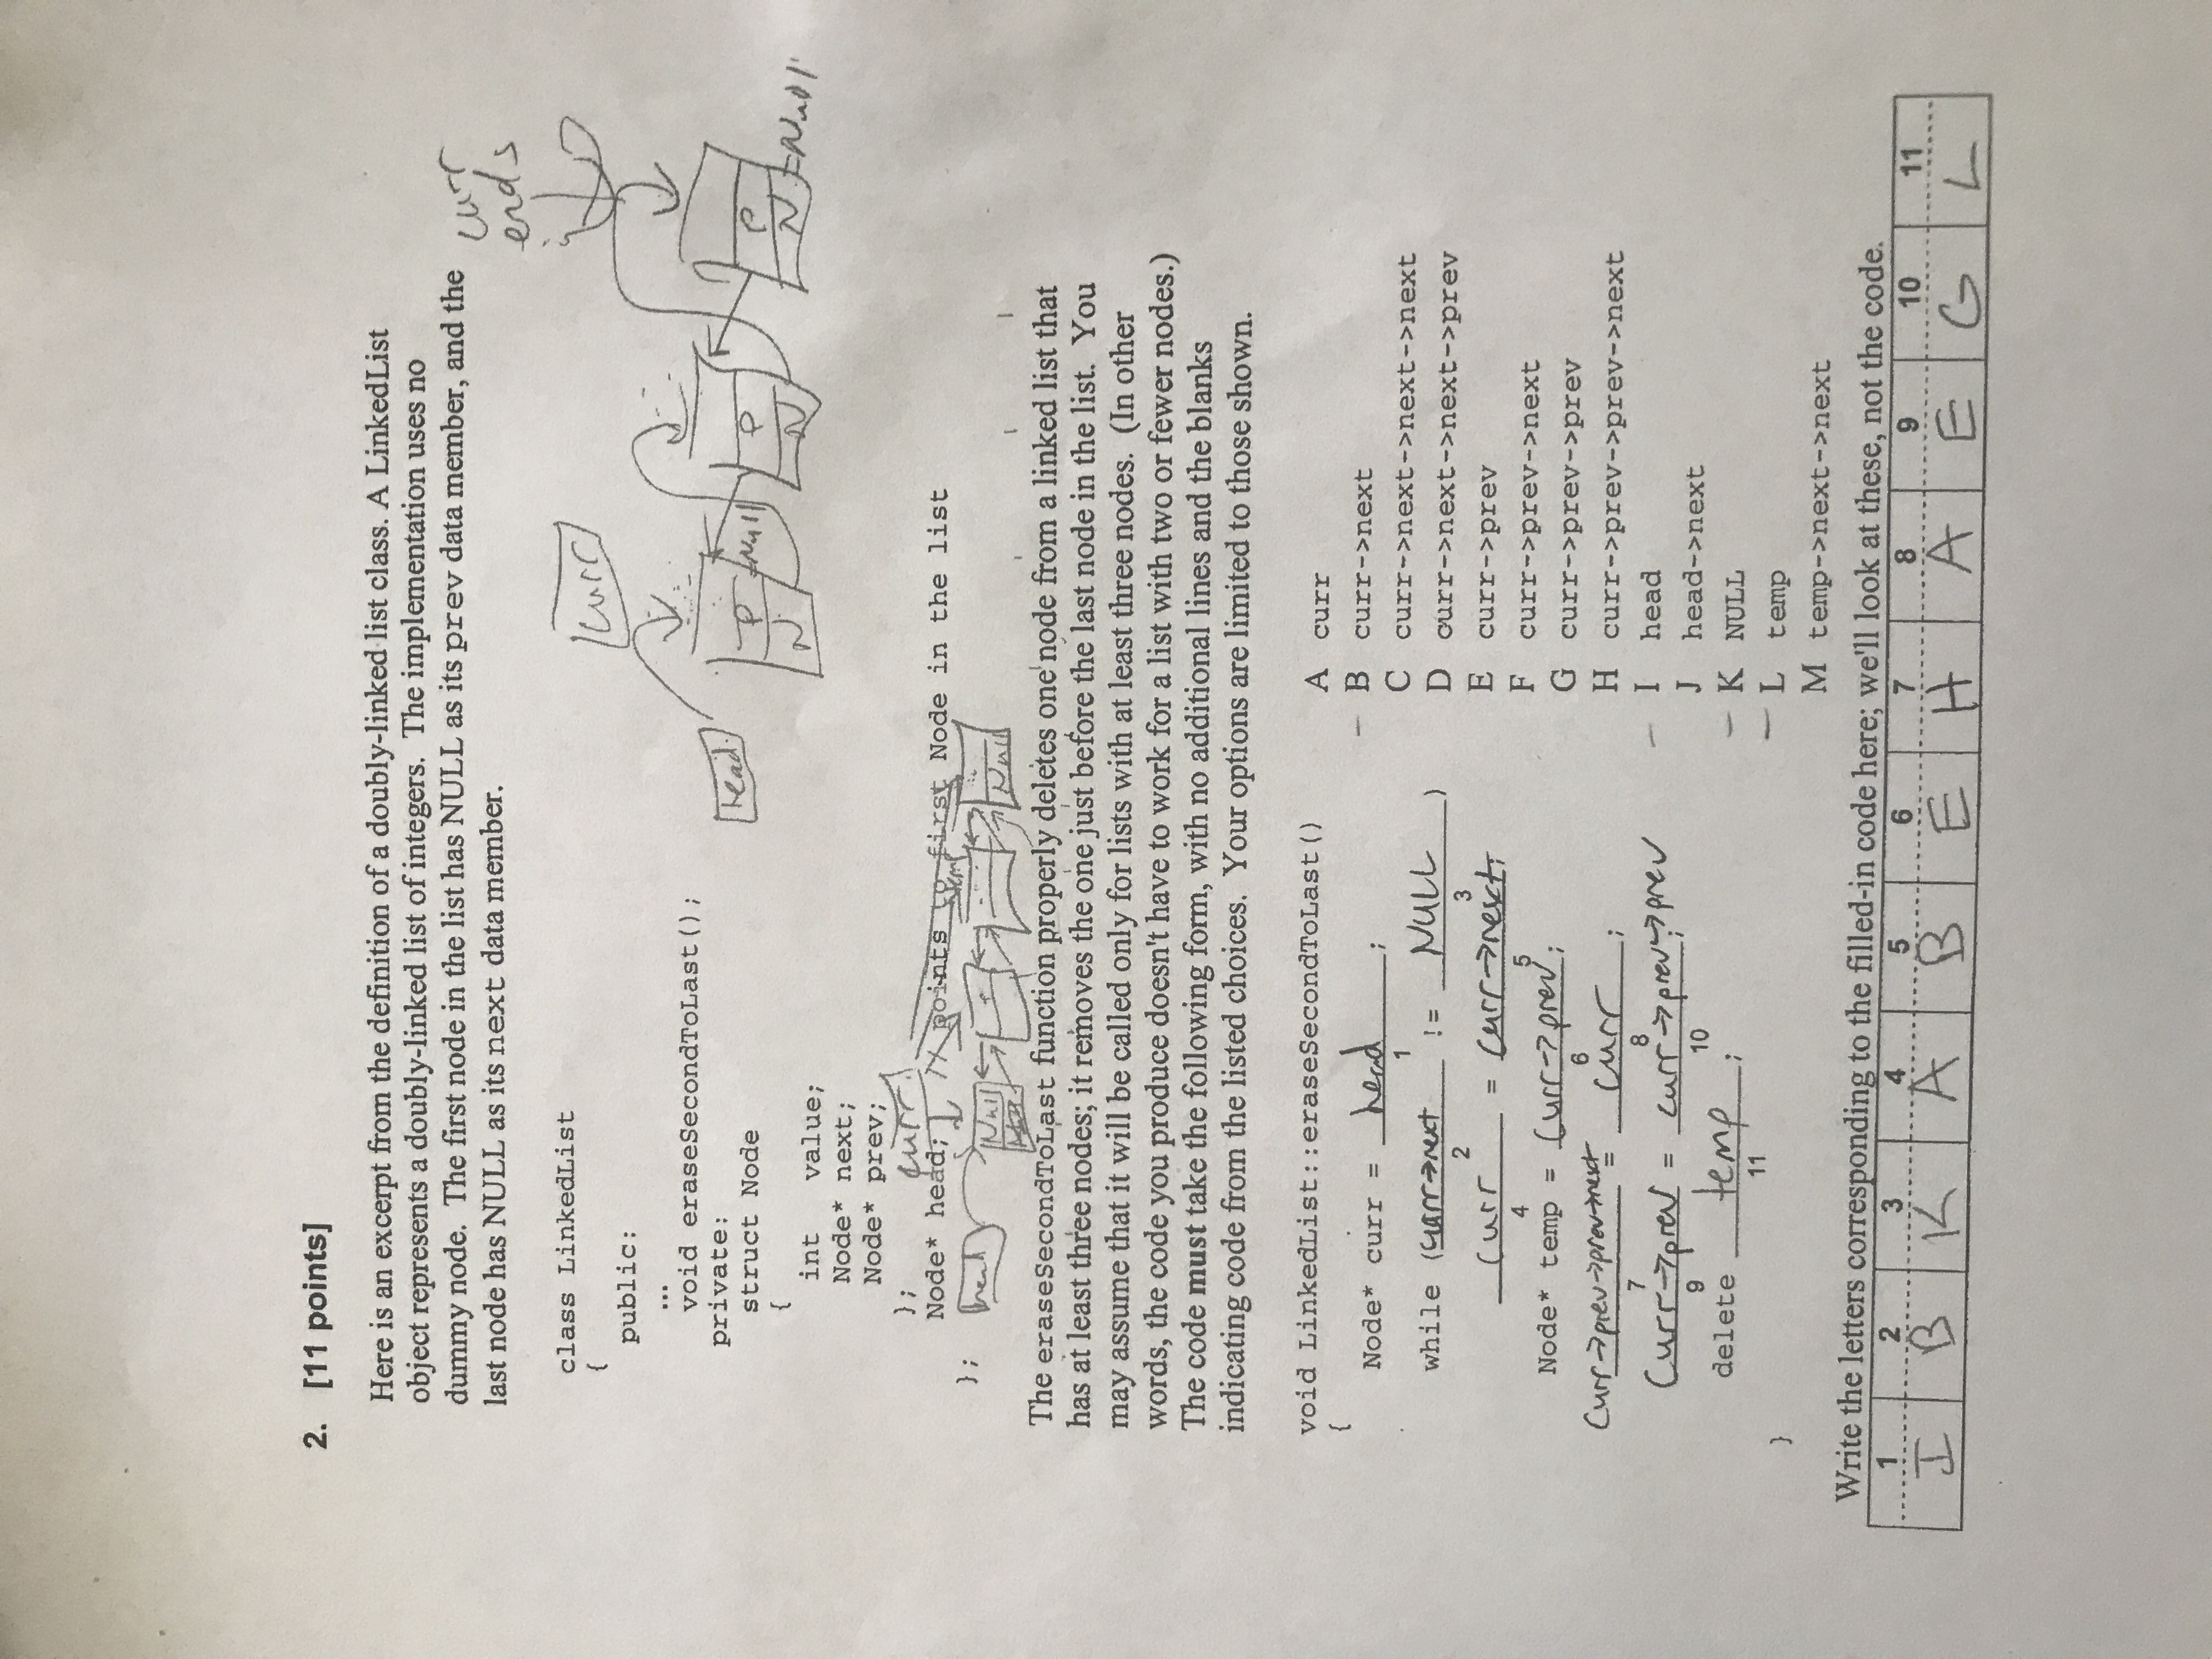 2. [11 points]
Here is an excerpt from the definition of a doubly-linked list class. A LinkedList
object represents a doubly-linked list of integers. The implementation uses no
dummy node. The first node in the list has NULL as its prev data member, and the
last node has NULL as its next data member.
curr
ends
class LinkedList
{
public:
...
void eraseSecondToLast();
private:
struct Node
{
int value;
Node* next;
Node* prev;
};
Node* head; // points to first Node in the list
};
curr
head
P =Null
N
P
N
P
N =Null
curr
temp
head
Null
Null
The eraseSecondToLast function properly deletes one node from a linked list that
has at least three nodes; it removes the one just before the last node in the list. You
may assume that it will be called only for lists with at least three nodes. (In other
words, the code you produce doesn't have to work for a list with two or fewer nodes.)
The code must take the following form, with no additional lines and the blanks
indicating code from the listed choices. Your options are limited to those shown.
void LinkedList::eraseSecondToLast()
{
Node* curr = head ;
1
while (curr->next != NULL )
2 3
curr = curr->next;
4 5
Node* temp = curr->prev;
6
curr->prev->prev->next = curr ;
7 8
curr->prev = curr->prev->prev ;
9 10
delete temp ;
11
}
A curr
B curr->next
C curr->next->next->next
D curr->next->next->prev
E curr->prev
F curr->prev->next
G curr->prev->prev
H curr->prev->prev->next
I head
J head->next
K NULL
L temp
M temp->next->next
Write the letters corresponding to the filled-in code here; we'll look at these, not the code.
1 2 3 4 5 6 7 8 9 10 11
I B K A B E H A E G L